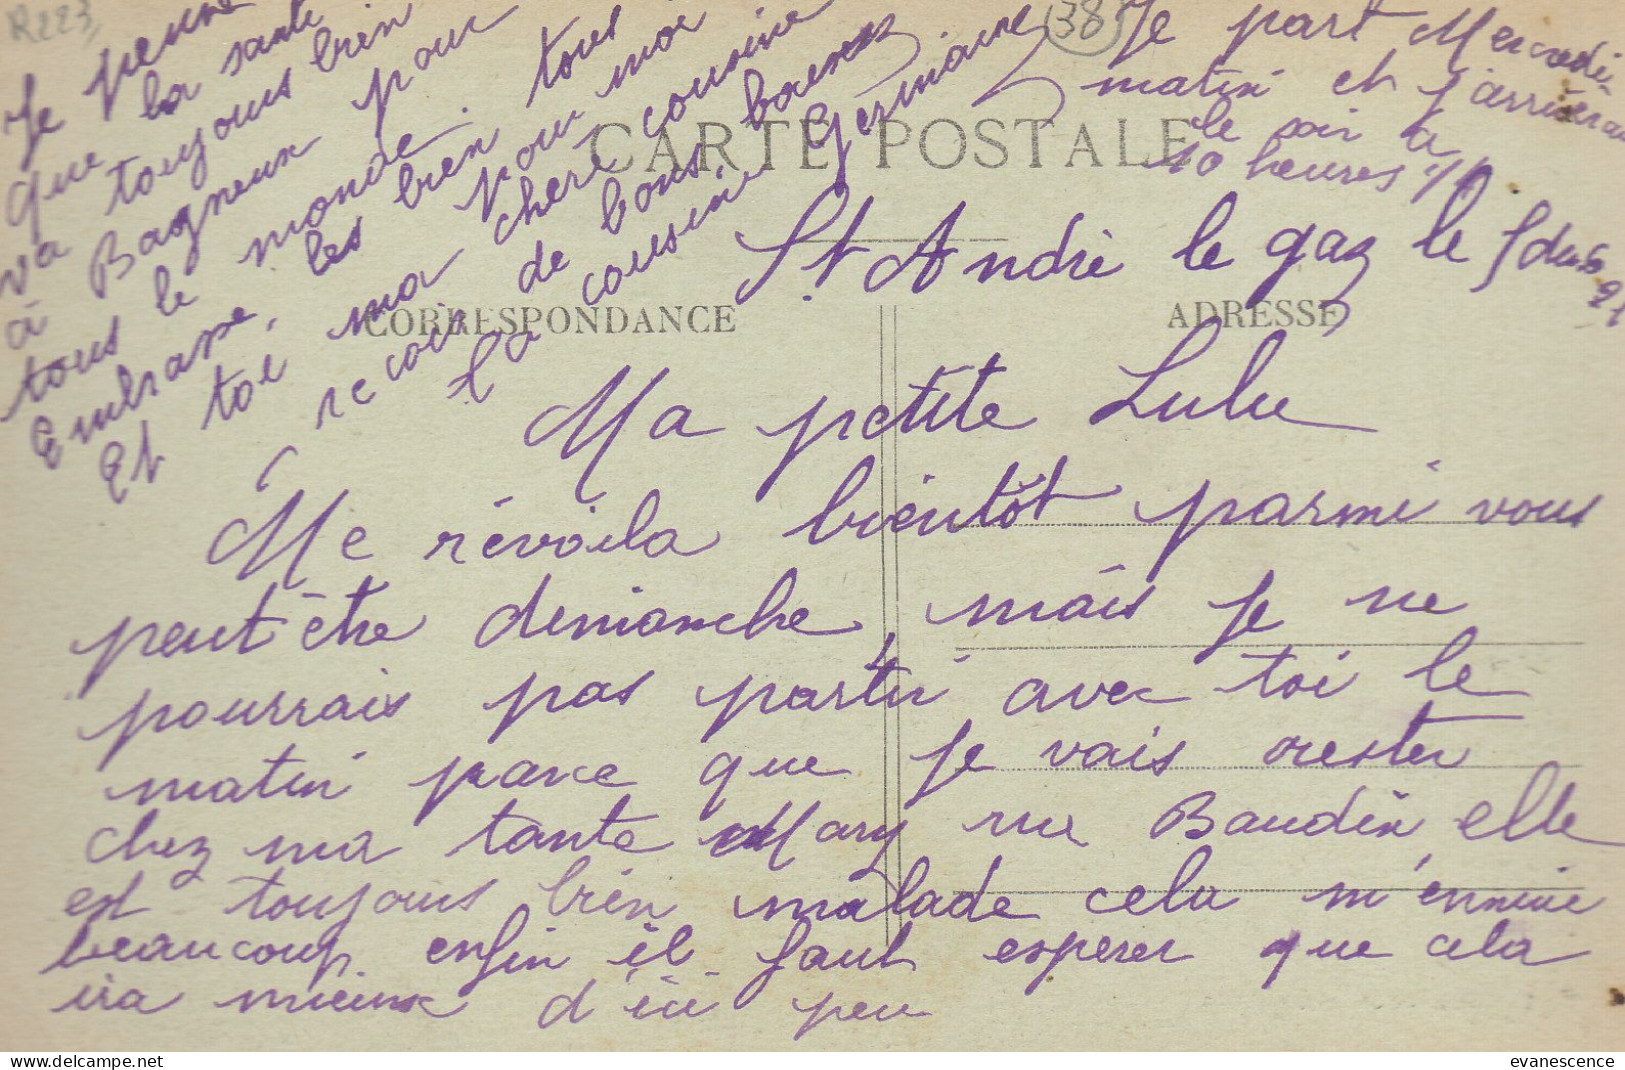 R223
38
CARTE POSTALE
CORRESPONDANCE
ADRESSE
St André le gaz le
Ma petite Lulu
Me révoila bientôt parmi vous
peut être dimanche, mais je ne
pourrais pas partir avec toi le
matin parce que je vais rester
chez ma tante Mary rue Baudin, elle
est toujours bien malade cela m'ennuie
beaucoup enfin il faut esperer que cela
ira mieux d'ici peu
Je pense
que la santé
va toujours bien
à Bagneux pour
tous le monde. tous
Embrasse, les bien pour moi
Et toi ma chere cousine
recois de bons baisers
ta cousine Germaine
Je part Mercredi
matin et j'arriverai
le soir a
10 heures 1/2
delcampe.net
evanescence